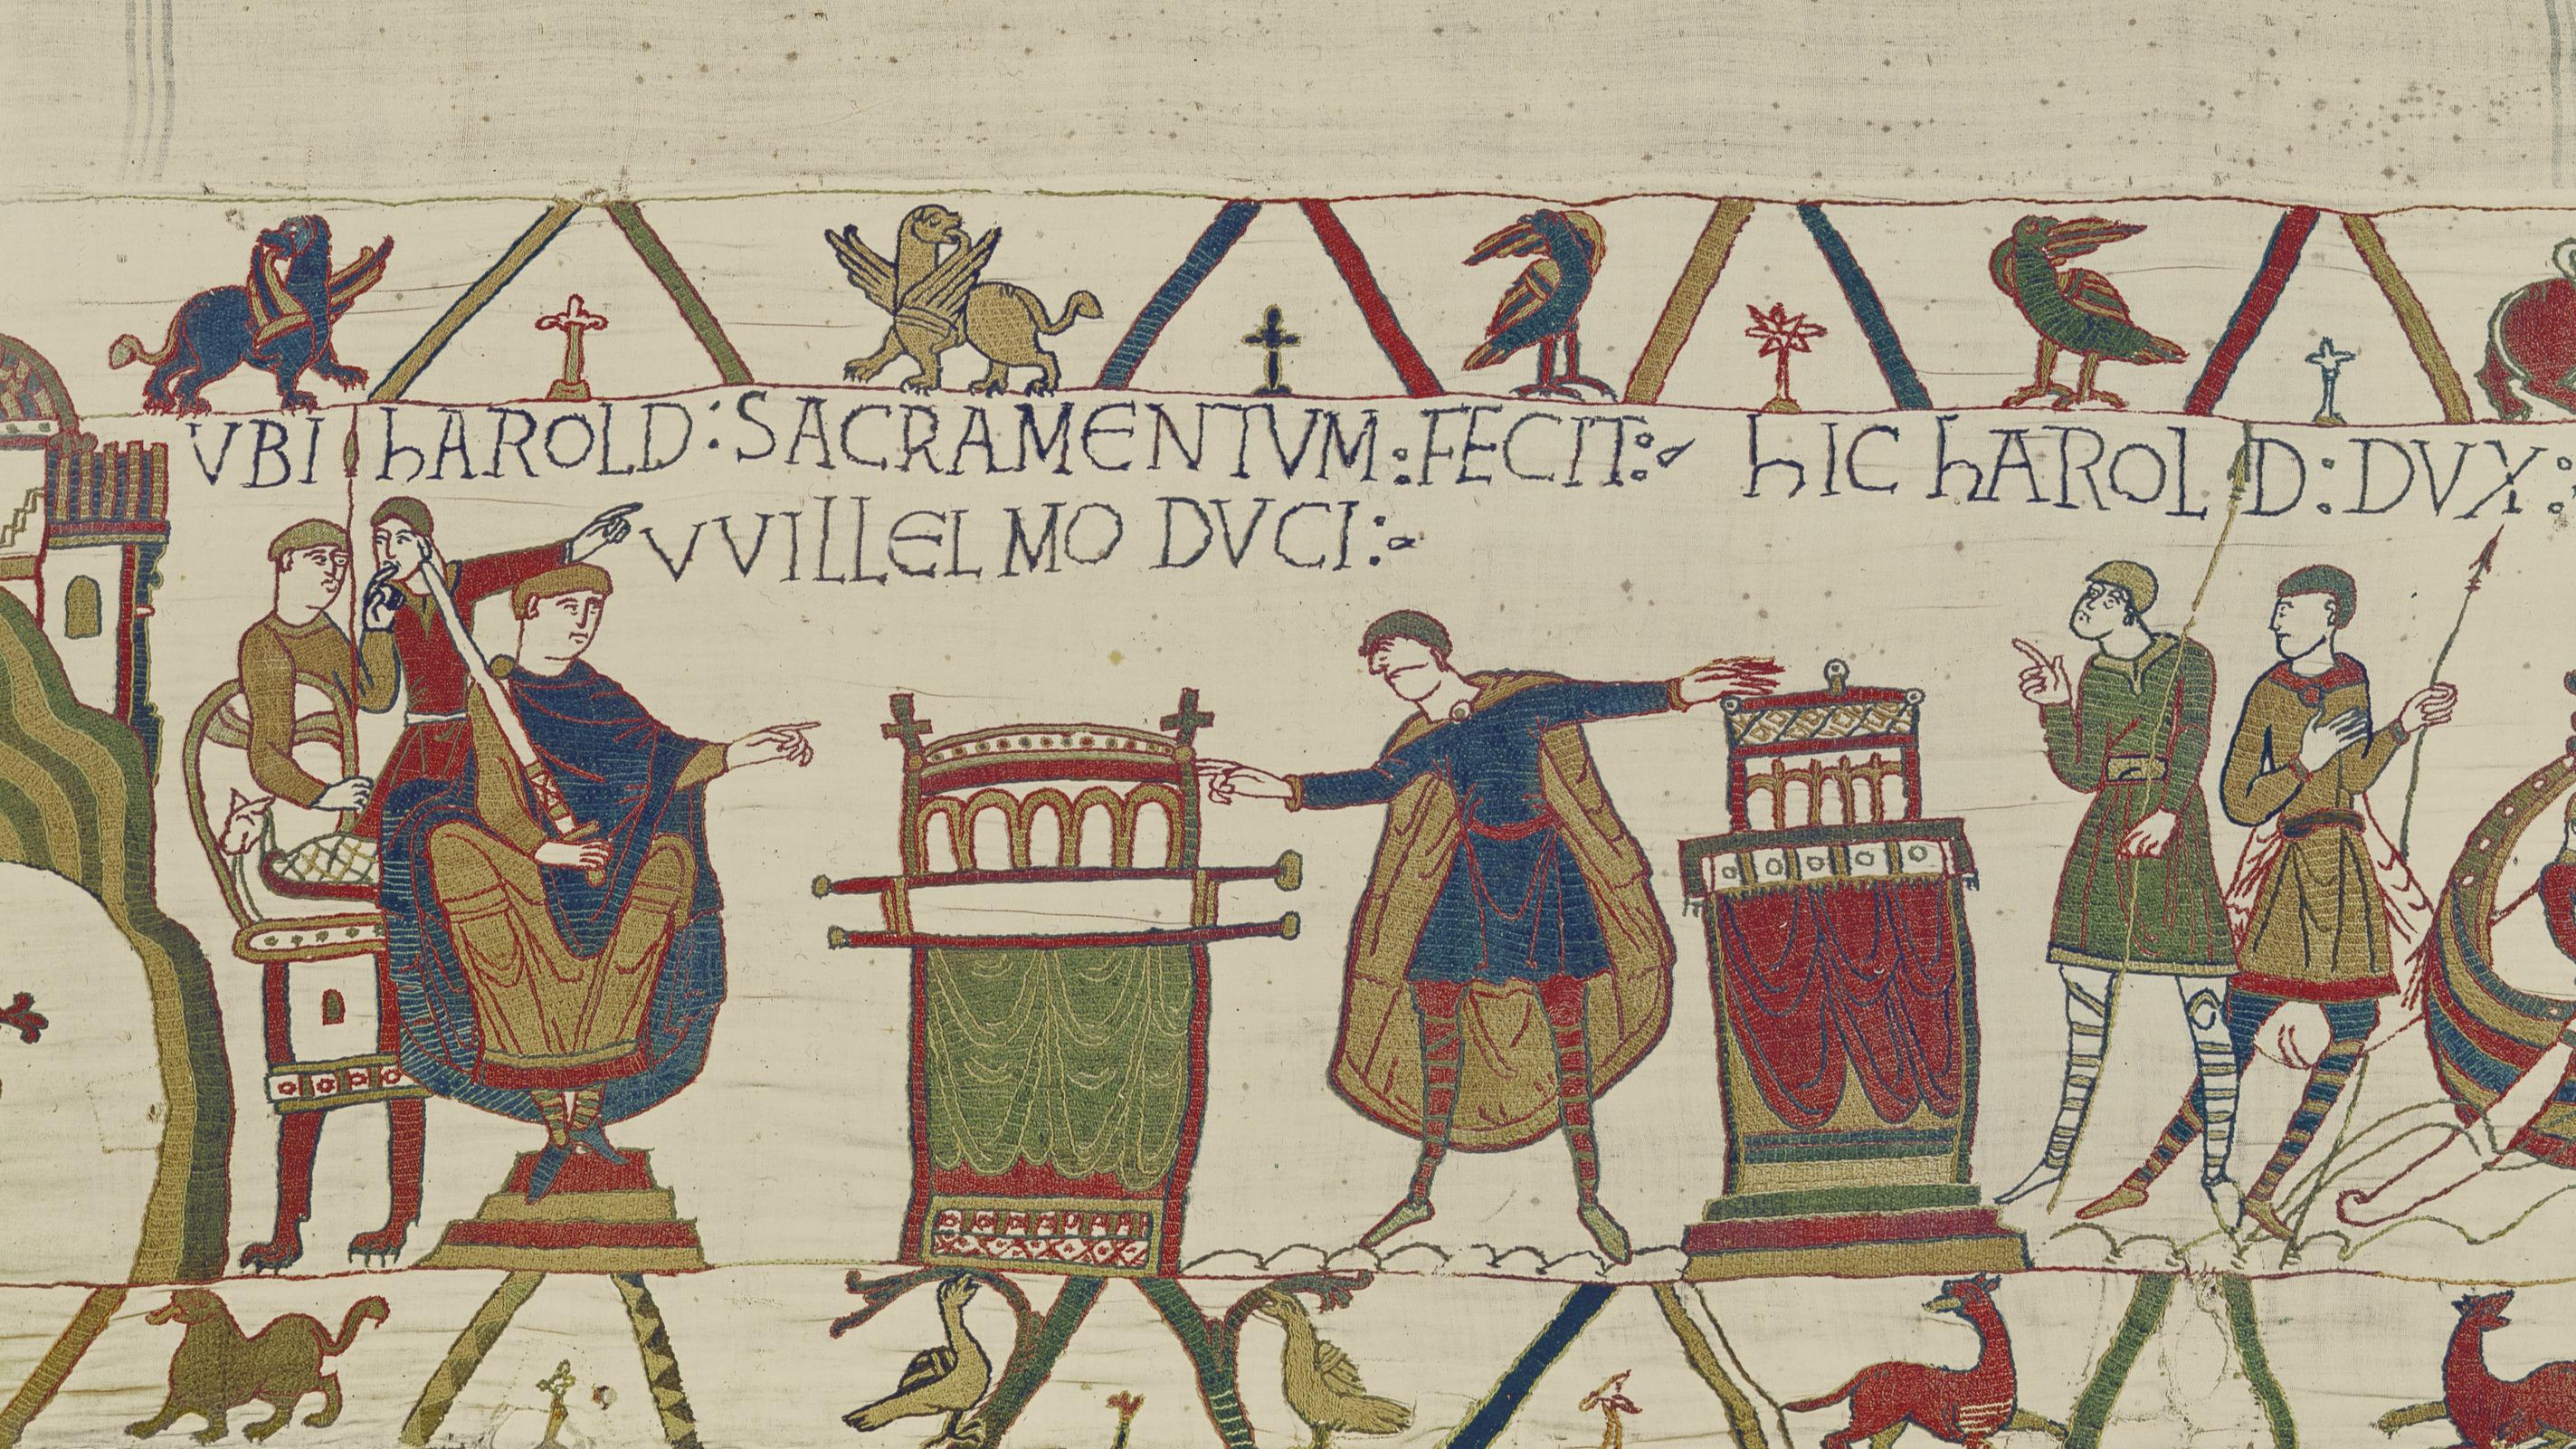 VBI hAROLD : SACRAMENTVM : FECIT :
VVILLELMO DVCI :
hIC hAROLD : DVX :